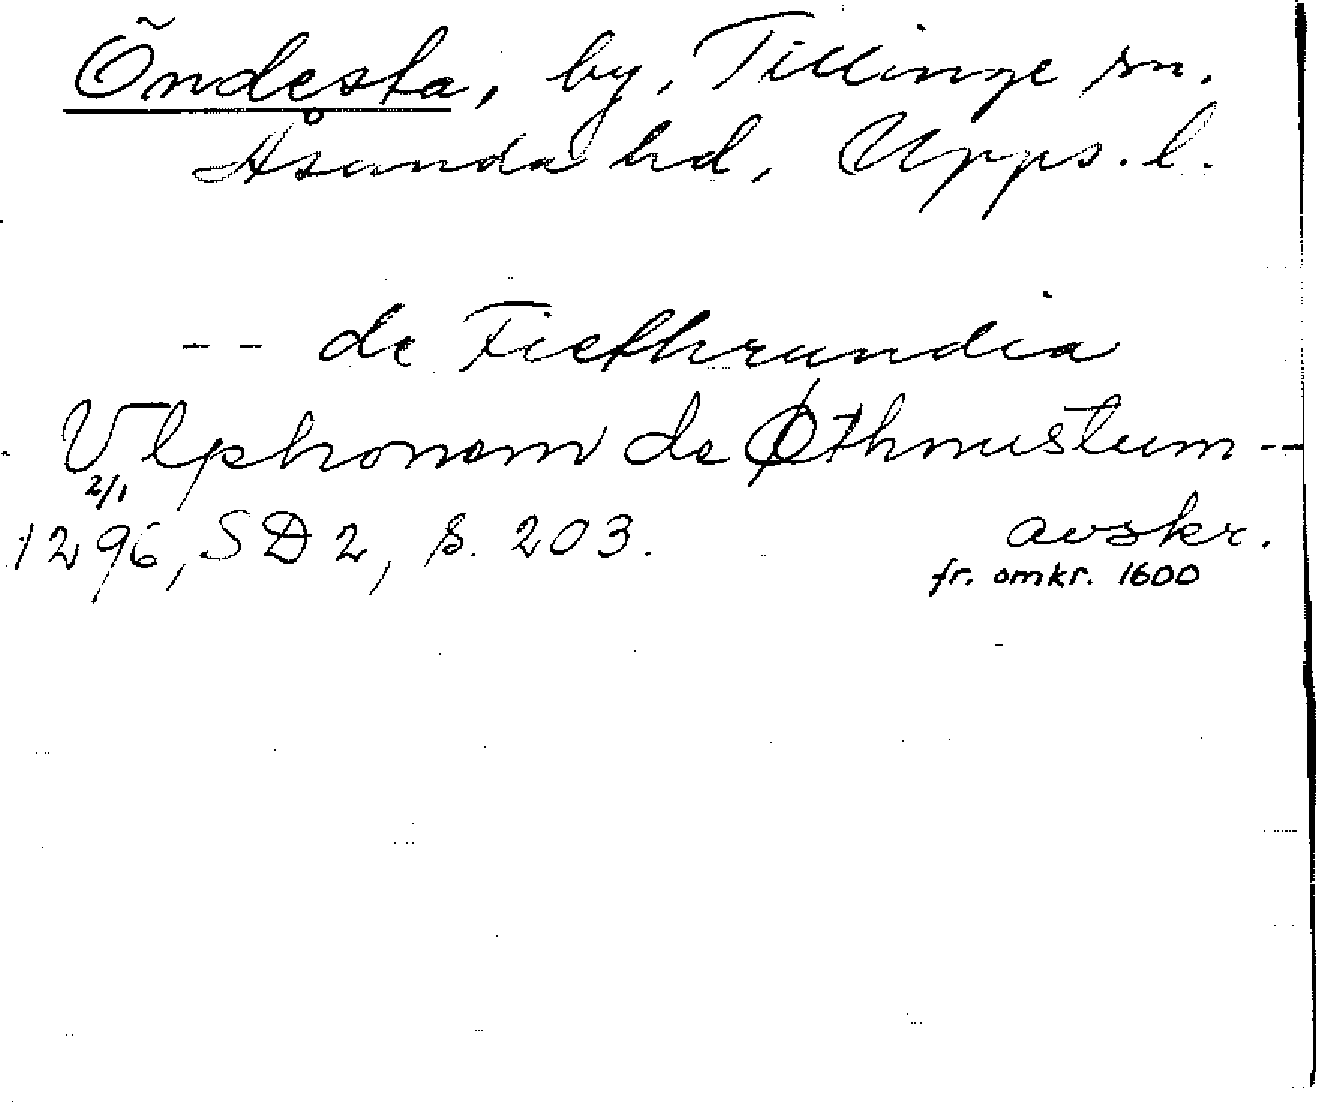 Öndesta, by, Tillinge sn.
Åsunda hd, Upps. l.
-- de Fiethrundia
Vlphonem de Øthnustum --
2/1
1296, SD 2, s. 203. avskr.
fr. omkr. 1600